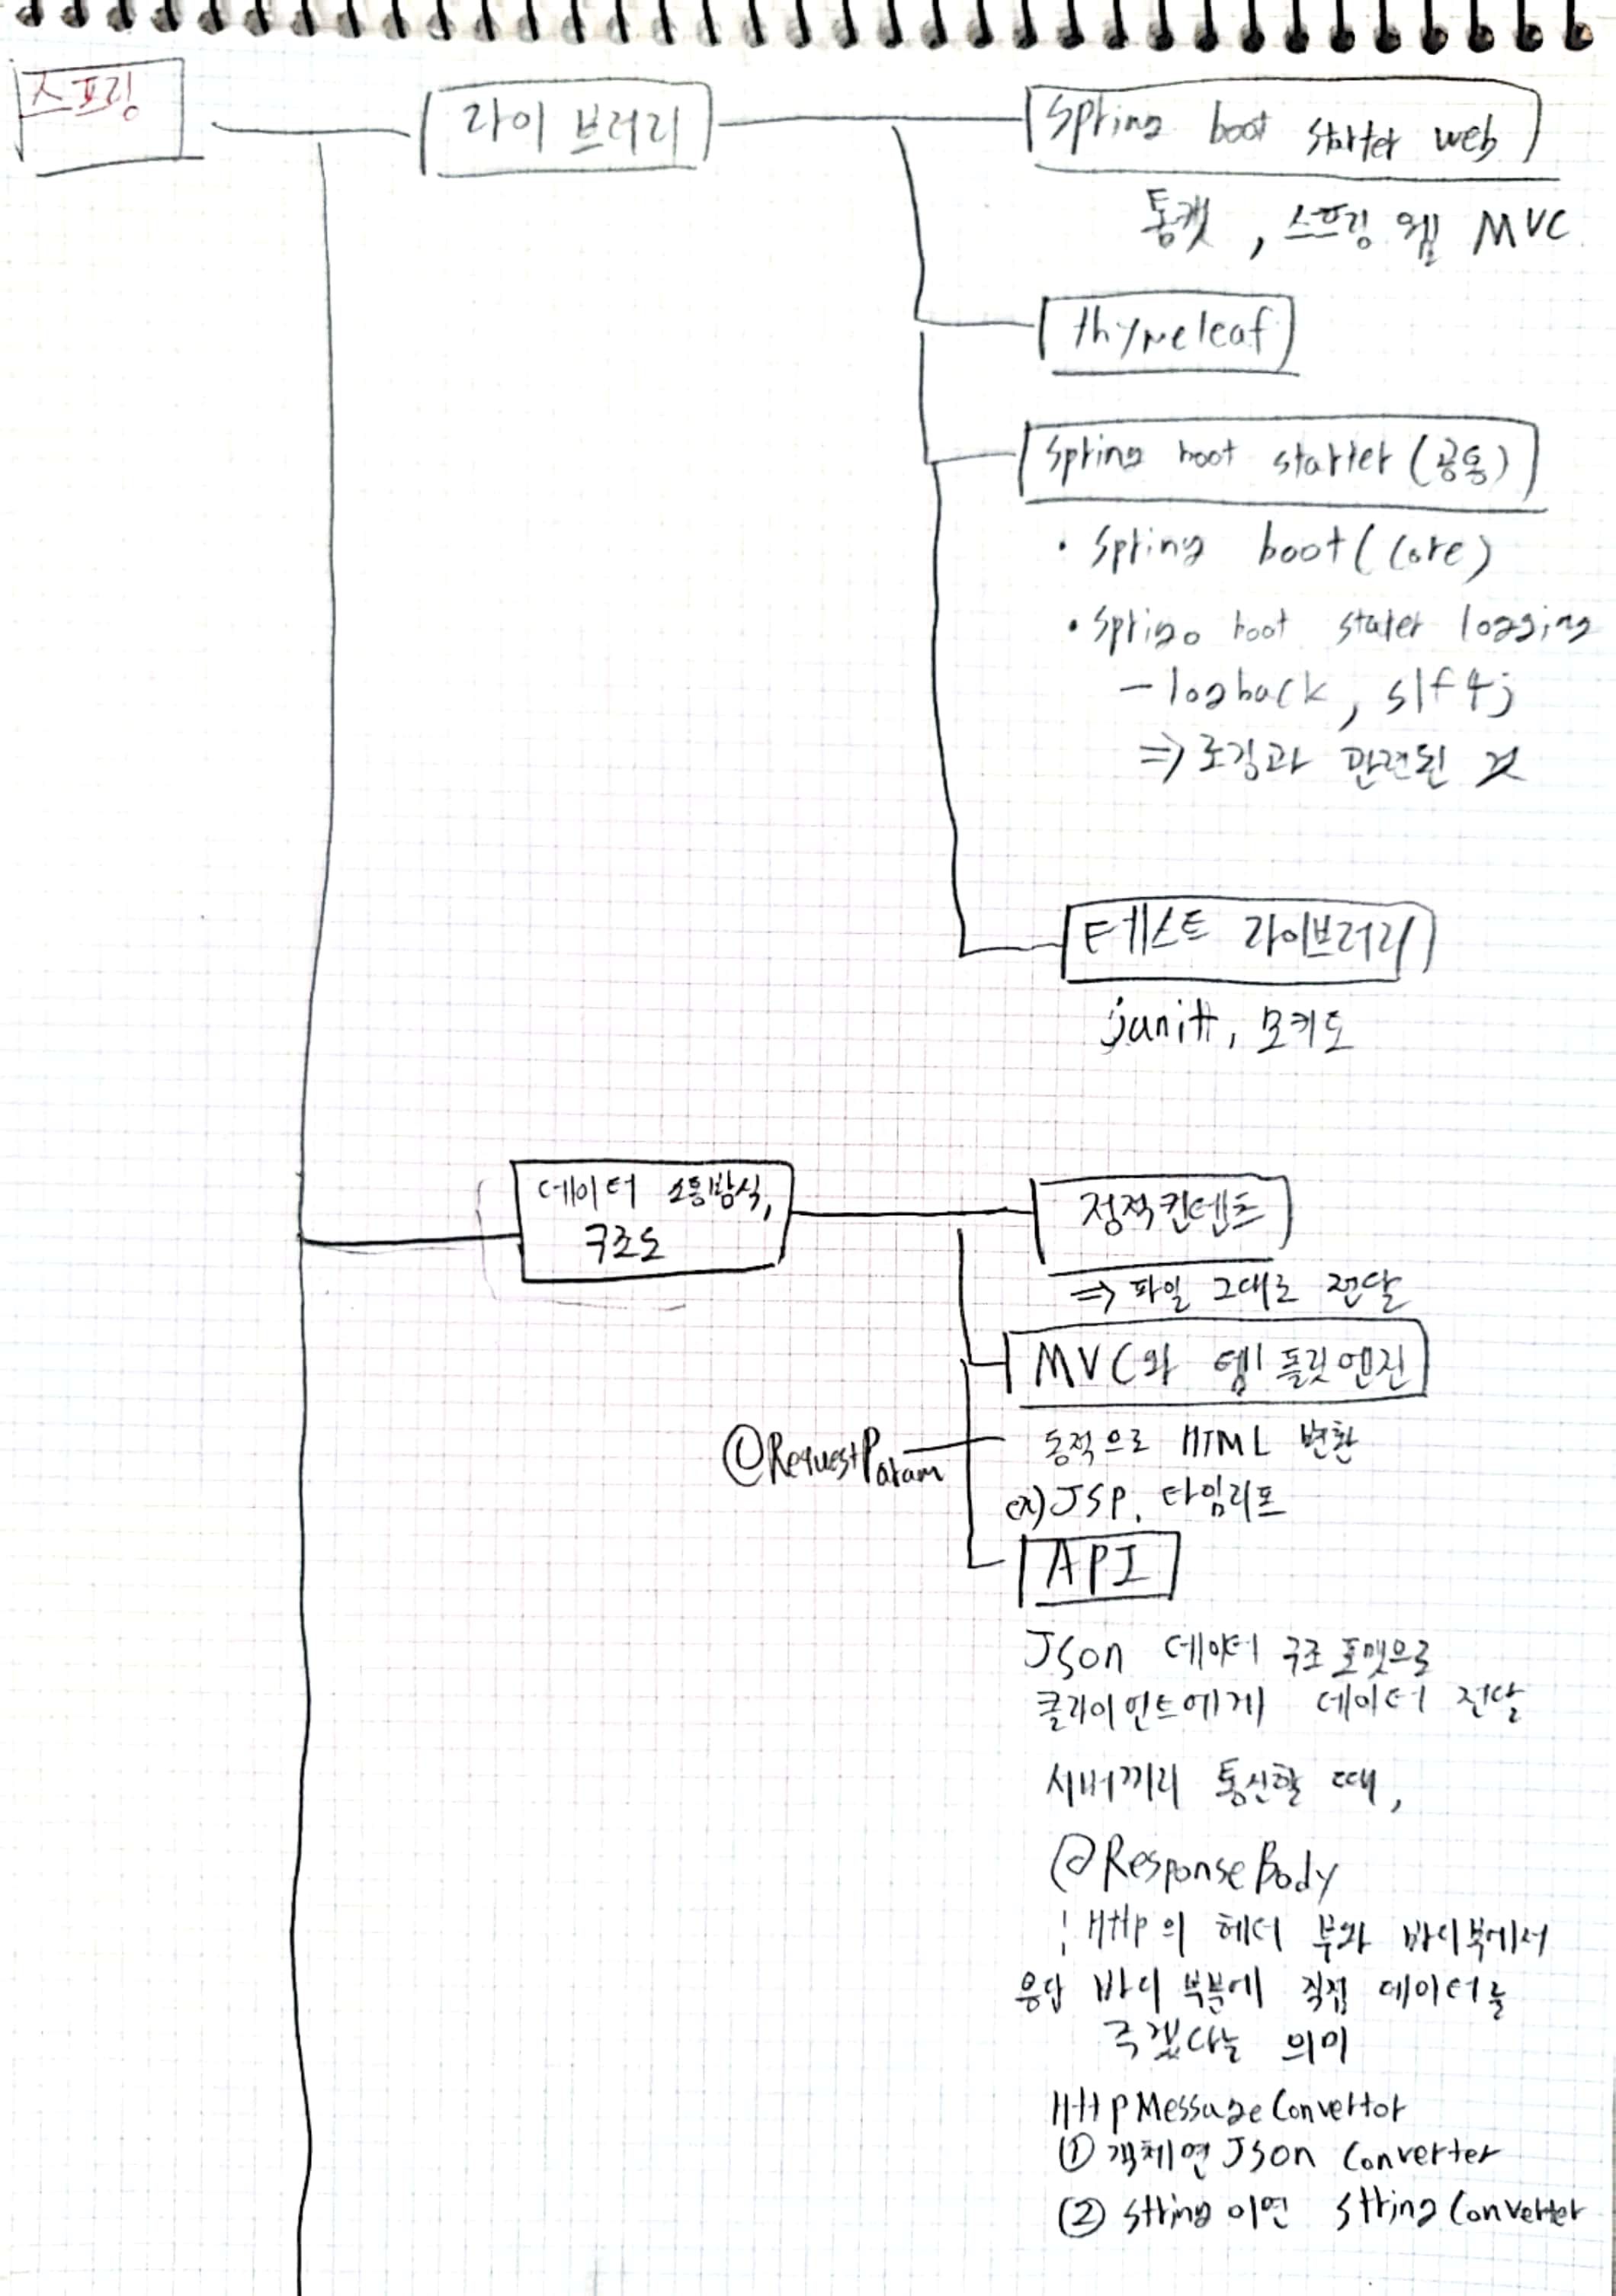 스프링
라이브러리
Spring boot starter web
톰캣, 스프링 웹 MVC
thymeleaf
Spring boot starter (공통)
• Spring boot (Core)
• Spring boot stater logging
- logback, slf4j
⇒ 로깅과 관련된 것
테스트 라이브러리
junitt, 모키토
데이터 소통방식,
구조도
정적컨텐츠
⇒ 파일 그대로 전달
MVC와 템플릿엔진
@RequestParam
동적으로 HTML 변환
ex) JSP, 타임리프
API
Json 데이터 구조 포맷으로
클라이언트에게 데이터 전달
서버끼리 통신할 때,
@ResponseBody
: Http의 헤더 부와 바디부에서
응답 바디 부분에 직접 데이터를
주겠다는 의미
HttpMessageConvertor
① 객체면 Json Converter
② String이면 String Converter